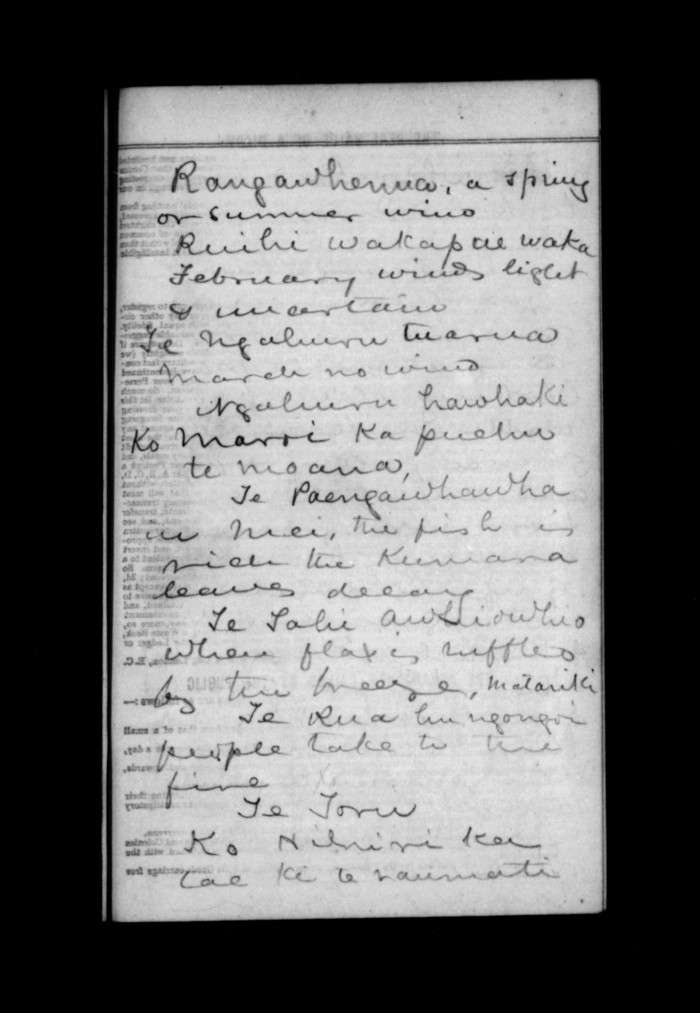 Rangawhenua, a spring
or summer wind
Ruihi wakapae waka
February winds light
& uncertain
Te Ngahuru tuarua
March no wind
Ngahuru hauhaki
Ko Marri Ka puehu
te moana,
Te Paengawhawha
in Mei, the fish is
rich the Kumara
leaves decay
Te Tahi
when flax is ruffled
by the breeze, Matariki
Te Rua hungongoi
people take to the
fire
Te Toru
Ko ka
tae ki te raumati